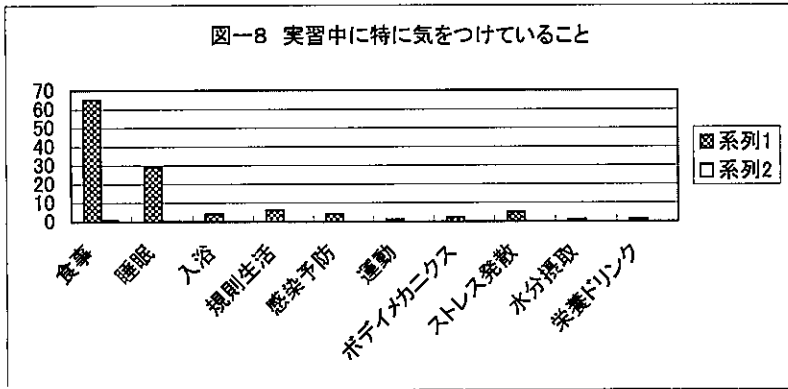 図ー8 実習中に特に気をつけていること
70
60
50
40
30
20
10
0
系列1
系列2
食事
睡眠
入浴
規則生活
感染予防
運動
ボデイメカニクス
ストレス発散
水分摂取
栄養ドリンク